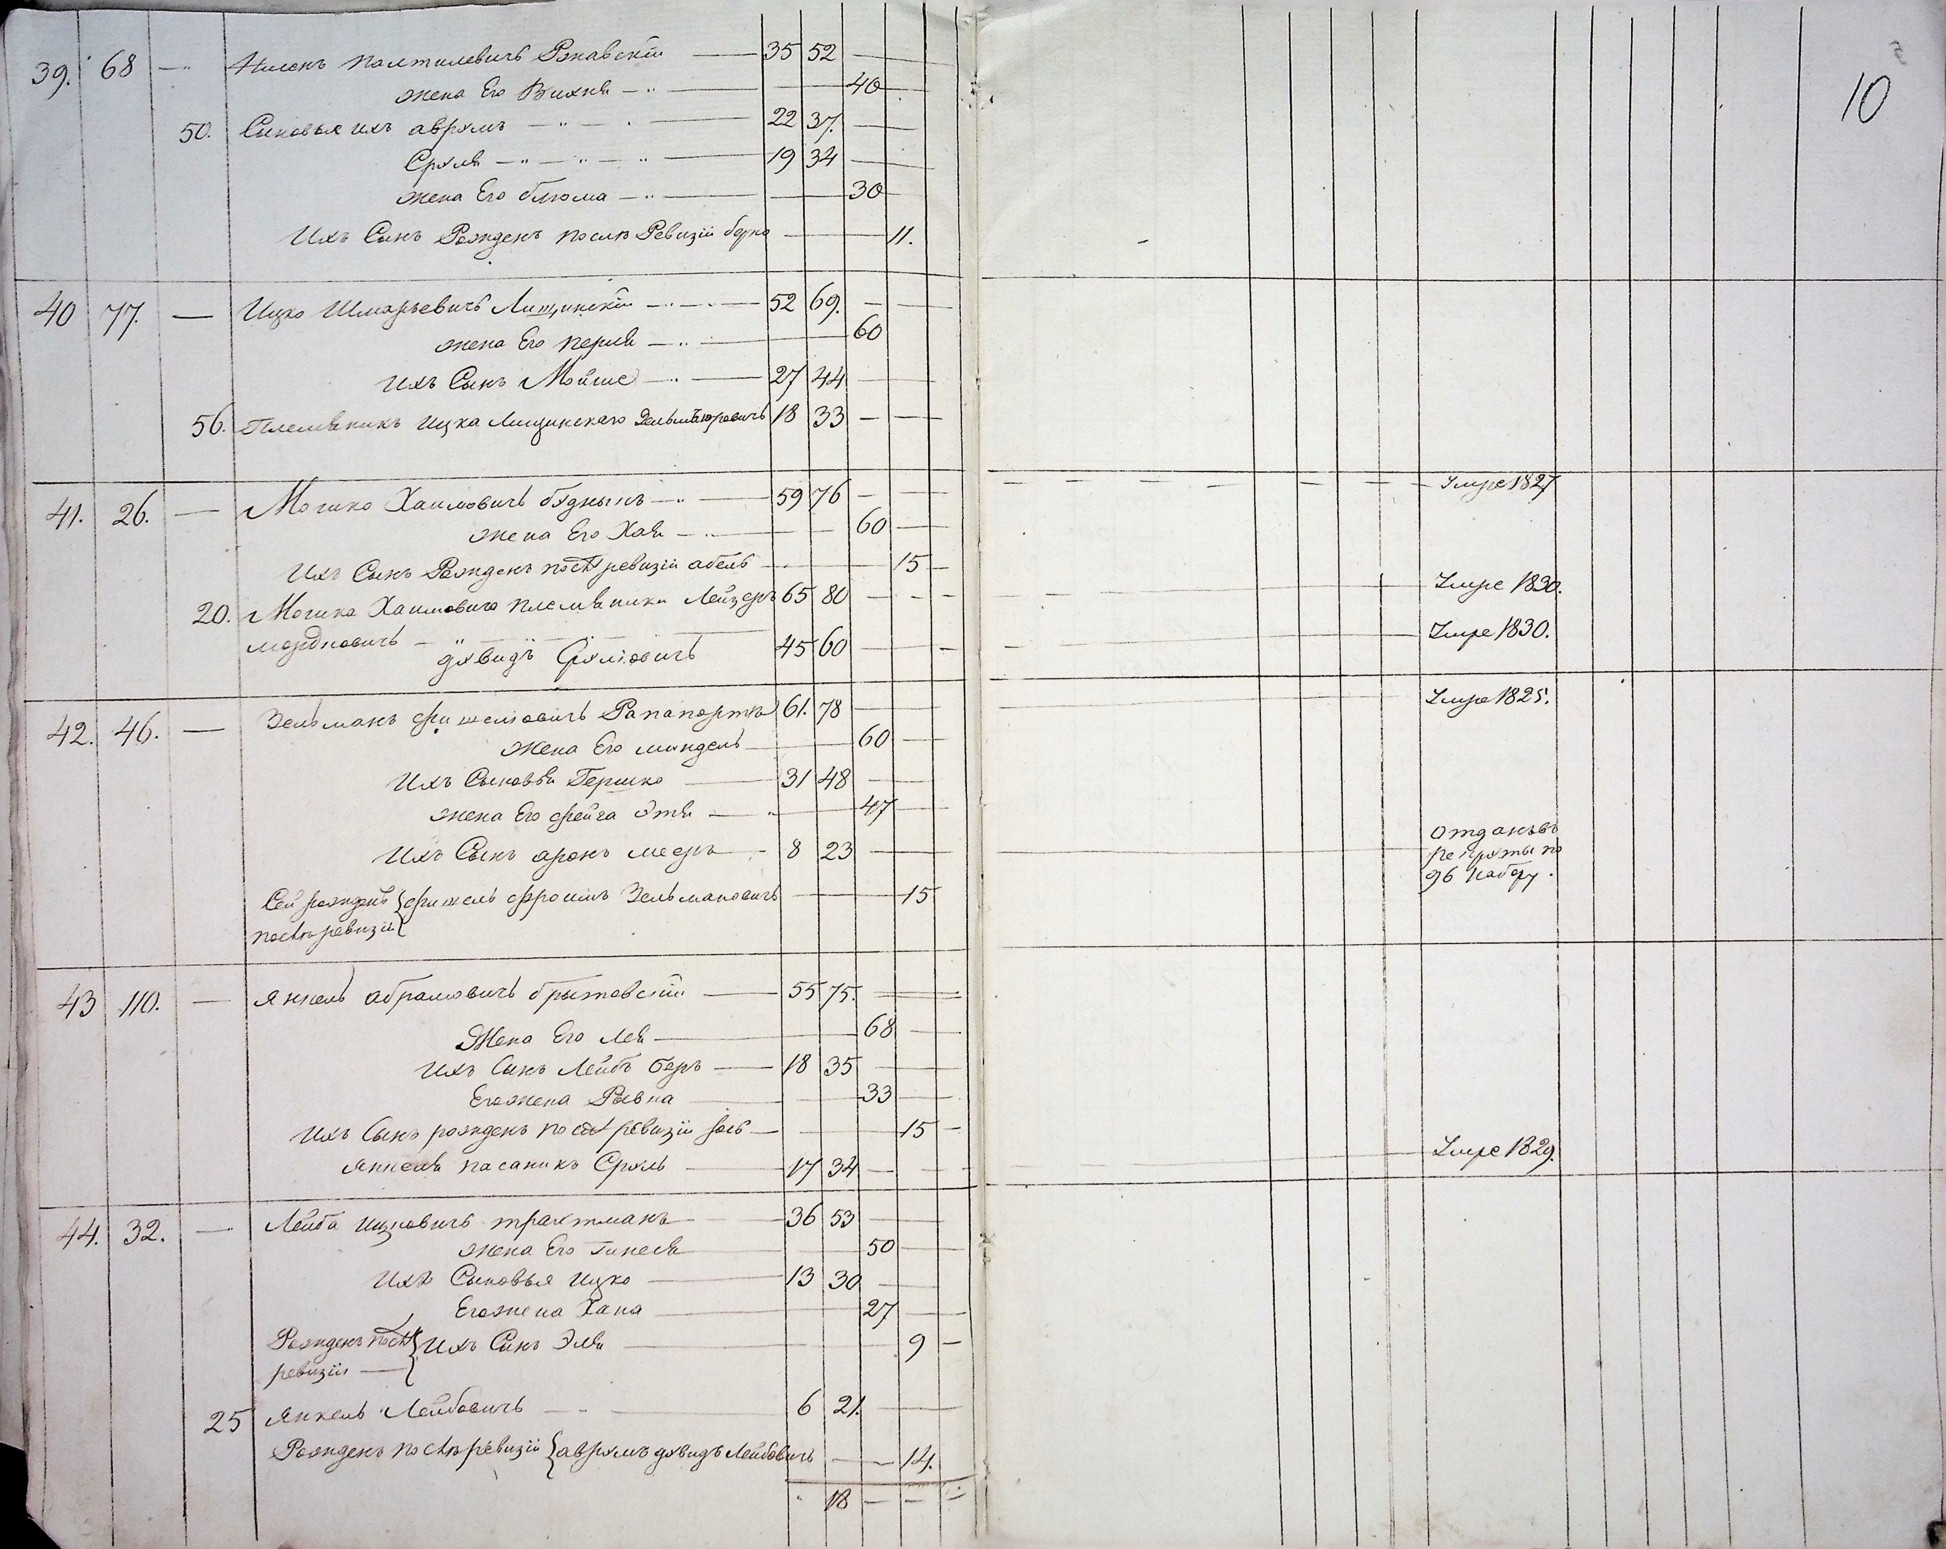 10
39. 68 — Нисенъ Палтилевичъ Ржавскій — 35 52 —
жена Его Вихня — 40
50. Сыновья ихъ аврумъ — 22 37. —
Сруль — 19 34 —
жена Его блюма — 30
Ихъ Сынъ Рожденъ послѣ Ревизіи берко — 11.
40 77. — Ицко Шмарьевичъ Лищинскій — 52 69. —
жена Его перля — 60
Ихъ Сынъ Мойше — 27 44 —
56. Племяникъ Ицка Лищинскаго 18 33 —
41. 26. — Мошко Хаимовичъ будныкъ — 59 76 — Умре 1827
жена Его Хая — 60 —
Ихъ Сынъ Рожденъ послѣ ревизіи абель — 15 —
20. Мошка Хаимовича племяники Лейзеръ 65 80 — Умре 1830.
мордковичъ —
дувидъ Срулiовичъ 45 60 — Умре 1830.
42. 46. — Зельманъ фишелiовичъ Рапапортъ 61. 78 — Умре 1825.
Жена Его миндель — 60 —
Ихъ Сыновья Гершко — 31 48 —
жена Его фейга Этя — 47 —
Ихъ Сынъ аронъ мееръ — 8 23 — Отданъ въ
рекруты по
96 набору.
Сей рожденъ { фишель фроимъ Зельмановичъ — 15
послѣ ревизіи {
43 110. — Янкель абрамовичъ брытовскій — 55 75. —
Жена Его Лея — 68 —
Ихъ Сынъ Лейбъ беръ — 18 35 —
Его жена Рывка — 33 —
Ихъ Сынъ рожденъ послѣ ревизіи — 15 —
Янкеля пасынокъ Сруль — 17 34 — Умре 1829.
44. 32. — Лейба Ицковичъ трахтманъ — 36 53 —
жена Его Гинеся — 50 —
Ихъ Сыновья Ицко — 13 30 —
Его жена Хана — 27 —
Рожденъ послѣ { Ихъ Сынъ Эля — 9 —
ревизіи — {
25 Янкель Лейбовичъ — 6 21. —
Рожденъ послѣ ревизіи { аврумъ дувидъ Лейбовичъ — 14.
18 — — —